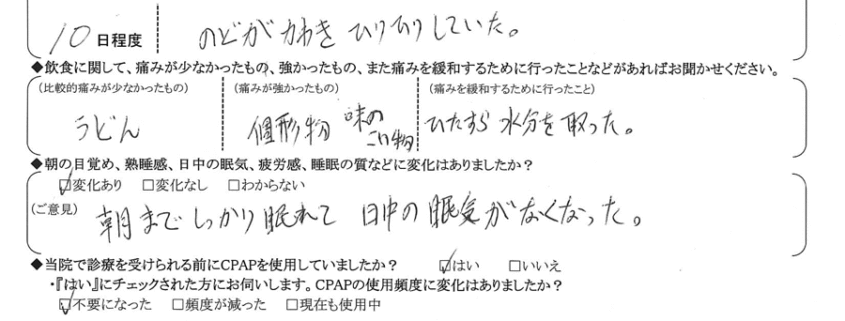 10日程度 のどがかわき ひりひりしていた。
◆飲食に関して、痛みが少なかったもの、強かったもの、また痛みを緩和するために行ったことなどがあればお聞かせください。
(比較的痛みが少なかったもの) (痛みが強かったもの) (痛みを緩和するために行ったこと)
うどん 個形物 味のこい物 ひたすら水分を取った。
◆朝の目覚め、熟睡感、日中の眠気、疲労感、睡眠の質などに変化はありましたか?
☑変化あり □変化なし □わからない
(ご意見) 朝までしっかり眠れて 日中の眠気がなくなった。
◆当院で診療を受けられる前にCPAPを使用していましたか? ☑はい □いいえ
・『はい』にチェックされた方にお伺いします。CPAPの使用頻度に変化はありましたか?
☑不要になった □頻度が減った □現在も使用中